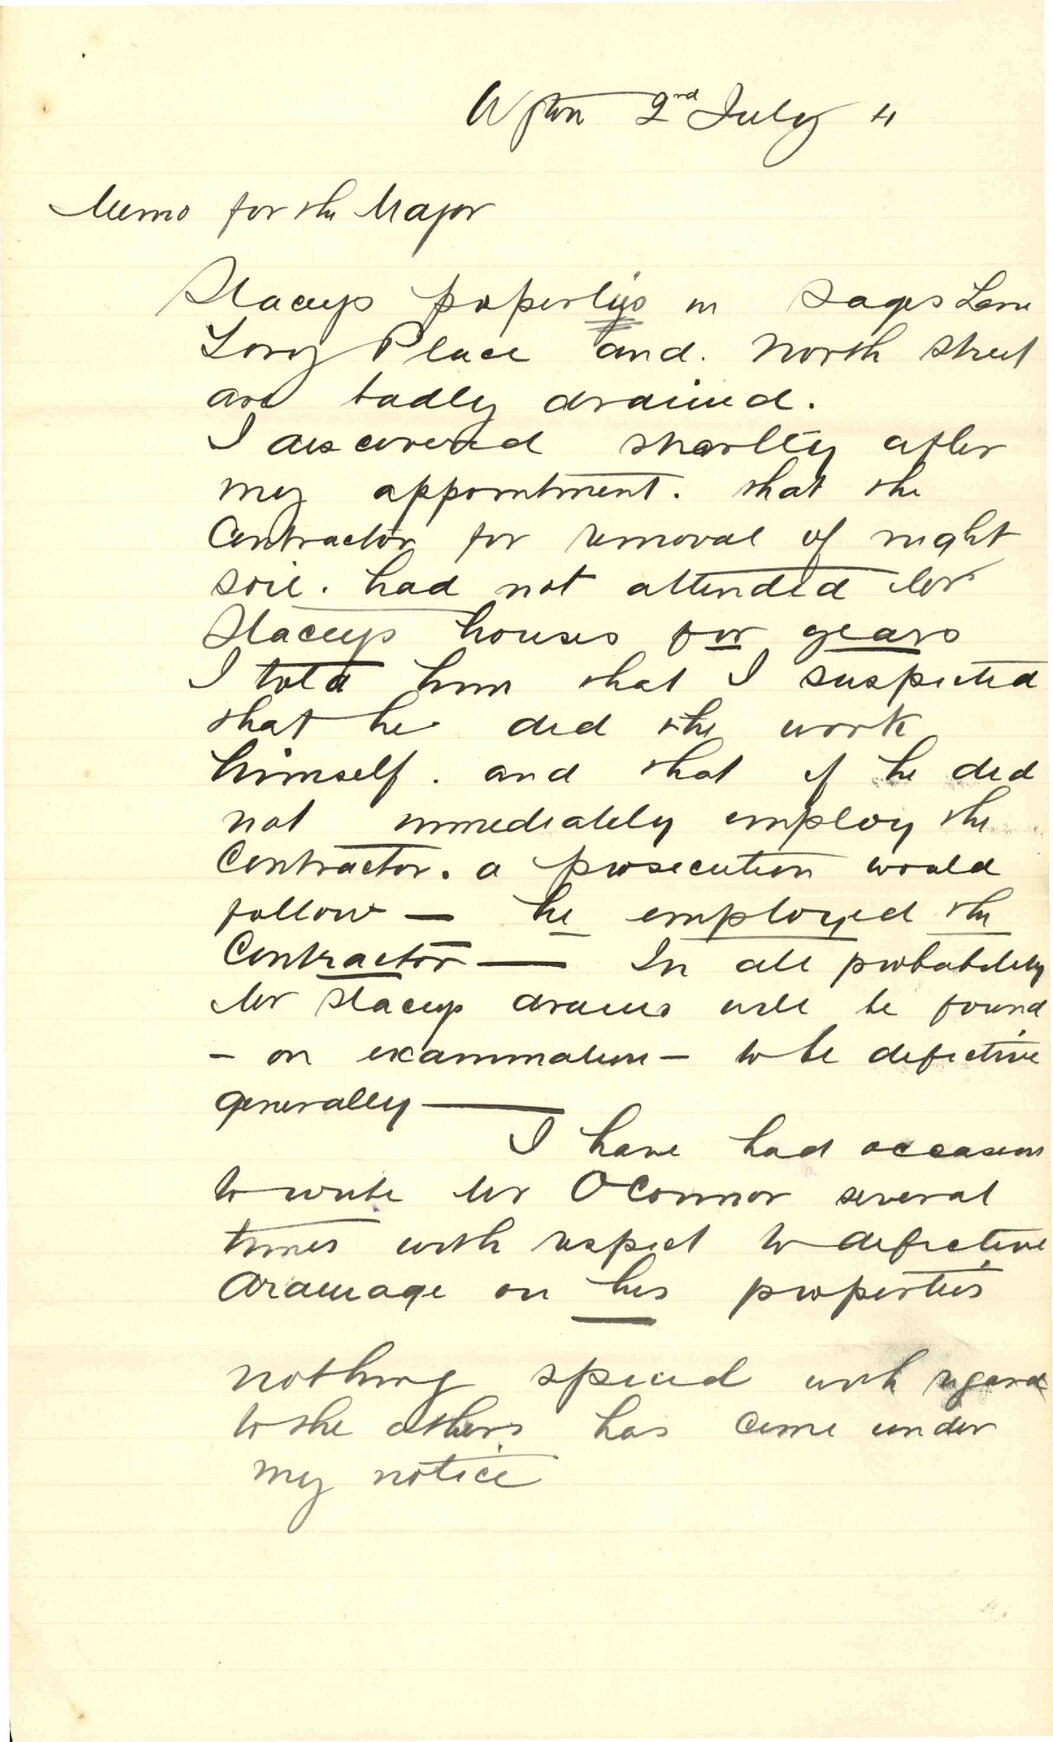 Upton 2nd July 4
Memo for the Major
Stacey's properties in Sages Lane
Long Place and. North Street
are badly drained.
I discovered shortly after
my appointment. that the
Contractor for removal of night
soil. had not attended Mr
Stacey's houses for years
I told him that I suspected
that he did the work
himself. and that if he did
not immediately employ the
Contractor. a prosecution would
follow — he employed the
Contractor — In all probability
Mr Stacey's drains will be found
- on examination - to be defective
generally —
I have had occasion
to write Mr OConnor several
times with respect to defective
drainage on his properties
nothing special with regard
to the others has come under
my notice